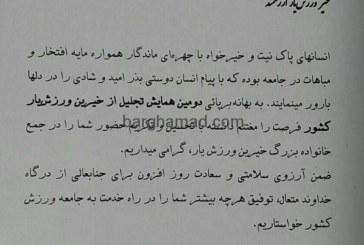 خیر ورزش یار ارزشمند
انسانهای پاک نیت و خیرخواه با چهره‌ای ماندگار همواره مایه افتخار و
مباهات در جامعه بوده که با پیام انسان دوستی بذر امید و شادی را در دلها
بارور مینمایند. به بهانه برپائی دومین همایش تجلیل از خیرین ورزش‌یار
کشور فرصت را مغتنم دانسته با تحسین و تکریم حضور شما را در جمع
barghamad.com
خانواده بزرگ خیرین ورزش یار، گرامی میداریم.
ضمن آرزوی سلامتی و سعادت روز افزون برای جنابعالی از درگاه
خداوند متعال، توفیق هرچه بیشتر شما را در راه خدمت به جامعه ورزش
کشور خواستاریم.